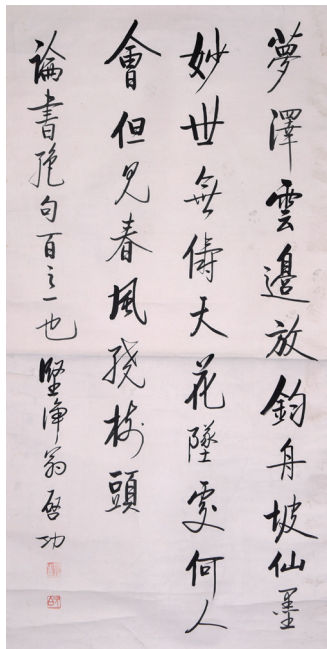 夢澤雲邊放釣舟坡仙墨
妙世無儔天花墜處何人
會但見春風繞樹頭
論書絕句百之一也 堅淨翁啓功